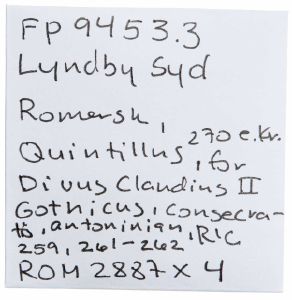 FP 9453.3
Lyndby Syd
Romersk, 270 e.Kr.
Quintillus, for
Divus Claudius II
Gothicus, consecra-
tio, antoninian, RIC
259, 261-262
ROM 2887 x 4